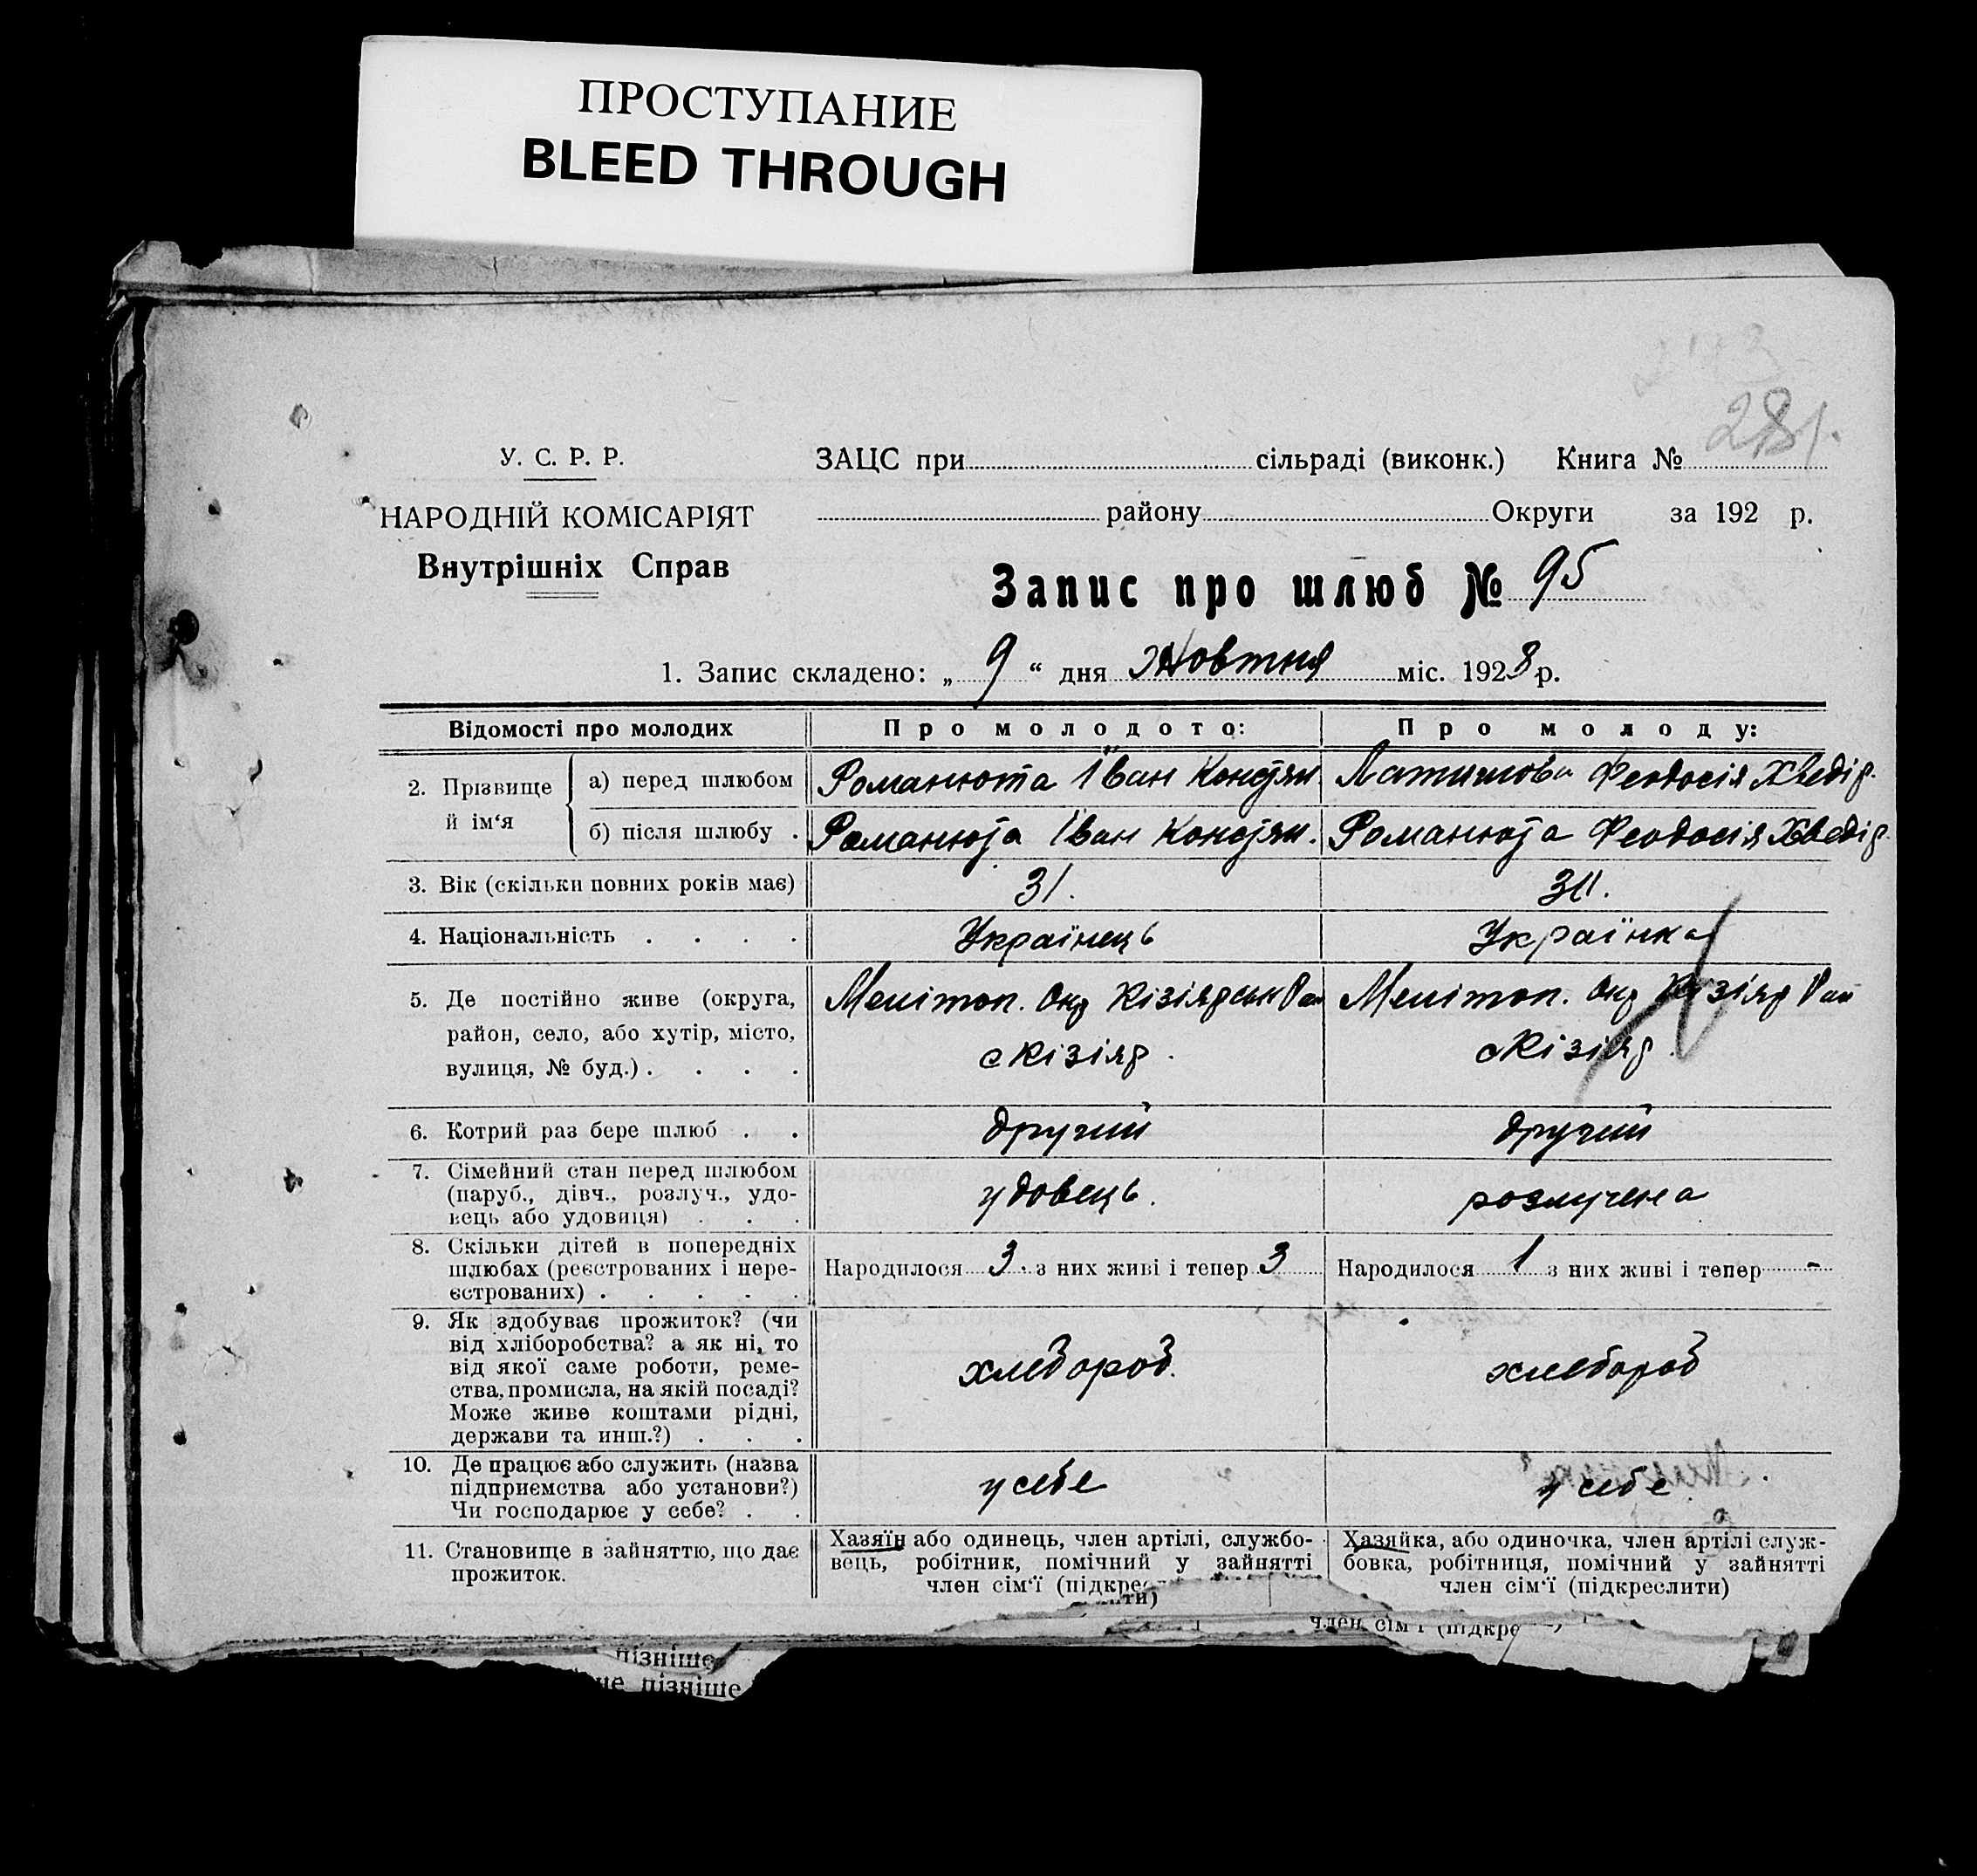 ПРОСТУПАНИЕ
BLEED THROUGH
281.
У. С. Р. Р.
ЗАЦС при сільраді (виконк.) Книга №
НАРОДНІЙ КОМІСАРІЯТ
району Округи за 192 р.
Внутрішніх Справ
Запис про шлюб № 95
1. Запис складено: „ 9 “ дня жовтня міс. 1928 р.
Відомості про молодих
Про молодого:
Про молоду:
2. Прізвище й ім‘я
а) перед шлюбом
Романюта Іван Констян.
Феодосія Хведір.
б) після шлюбу .
Романюта Іван Констян.
Романюта Феодосія Хведір.
3. Вік (скільки повних років має)
31.
4. Національність . . . .
Українець
Українка
5. Де постійно живе (округа,
район, село, або хутір, місто,
вулиця, № буд.) . . . .
Меліт­оп. Окр Кізіярськ Рай
с Кізіяр.
Мелітоп. Окр Кізіяр Рай
с Кізіяр.
6. Котрий раз бере шлюб . .
другий
другий
7. Сімейний стан перед шлюбом
(паруб., дівч., розлуч., удо-
вець або удовиця) . . .
удовець.
розлучена
8. Скільки дітей в попередніх
шлюбах (реєстрованих і нере-
єстрованих) . . . . .
Народилося 3. з них живі і тепер 3
Народилося 1 з них живі і тепер -
9. Як здобуває прожиток? (чи
від хліборобства? а як ні, то
від якої саме роботи, реме-
ства, промисла, на якій посаді?
Може живе коштами рідні,
держави та инш.?) . . .
хлебороб.
хлебороб
10. Де працює або служить (назва
підприємства або установи?)
Чи господарює у себе? . .
у себе
у себе
11. Становище в зайняттю, що дає
прожиток.
Хазяїн або одинець, член артілі, службо-
вець, робітник, помічний у зайнятті
член сім‘ї (підкрес
ти)
Хазяйка, або одиночка, член артілі служ-
бовка, робітниця, помічний у зайнятті
член сім‘ї (підкреслити)
член сім‘ї (підкре
пізніше
не пізніше